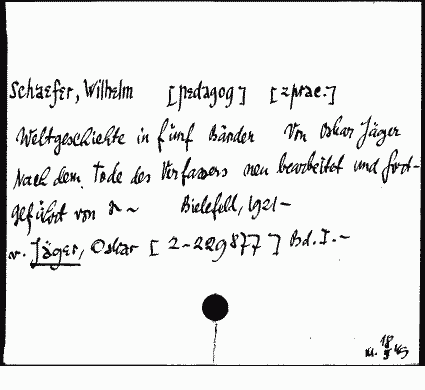 Schaefer, Wilhelm [pedagog] [zprac.]
Weltgeschichte in fünf Bänden Von Oskar Jäger
Nach dem Tode des Verfassers neu bearbeitet und fort-
geführt von ~ ~ Bielefeld, 1921-
v. Jäger, Oskar [2-229877] Bd. I.-
18